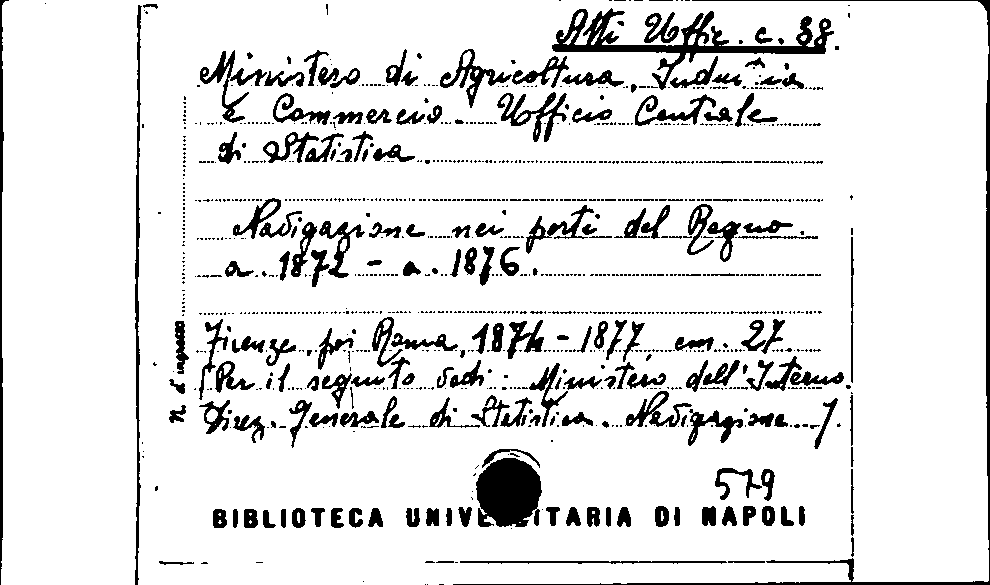 Atti Uffic. c. 38.
Ministero di Agricoltura, Industria
e Commercio. Ufficio Centrale
di Statistica.
Navigazione nei porti del Regno.
a. 1872 - a. 1876.
Firenze, poi Roma, 1874 - 1877, cm. 27.
[Per il seguito vedi: Ministero dell'Interno.
Direz. Generale di Statistica. Navigazione...].
N. d'ingresso
579
BIBLIOTECA UNIVERSITARIA DI NAPOLI